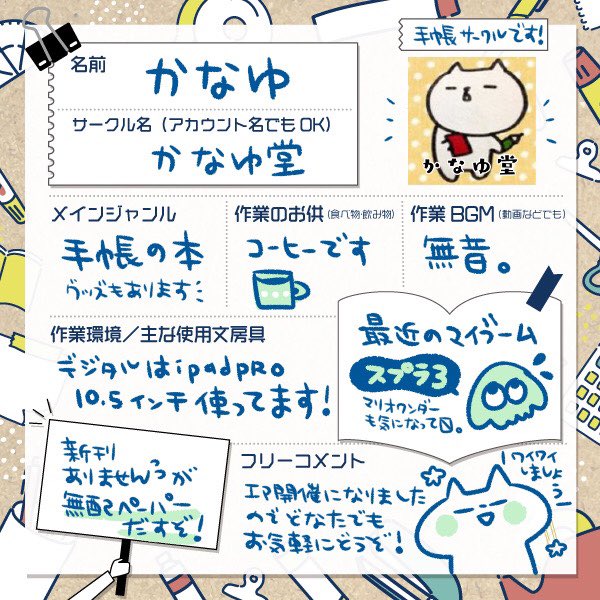 手帳サークルです!
名前
かなゆ
サークル名(アカウント名でもOK)
かなゆ堂
かなゆ堂
メインジャンル
手帳の本
グッズもあります
作業のお供(食べ物・飲み物)
コーヒーです
作業BGM(動画などでも)
無音。
作業環境/主な使用文房具
デジタルはipadpro
10.5インチ使ってます!
最近のマイブーム
スプラ3
マリオワンダー
も気になって〼。
新刊
ありませんっが
無配ペーパー
だすぞ!
フリーコメント
エア開催になりました
のでどなたでも
お気軽にどうぞ!
ワイワイ
しましょ
う